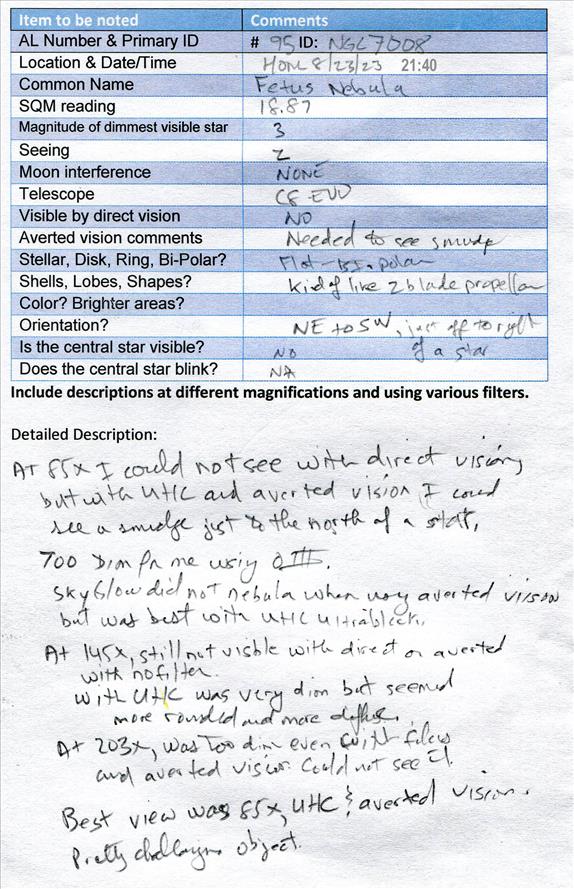 Item to be noted Comments
AL Number & Primary ID # 95 ID: NGC7008
Location & Date/Time HOME 8/23/23 21:40
Common Name Fetus Nebula
SQM reading 18.87
Magnitude of dimmest visible star 3
Seeing 2
Moon interference NONE
Telescope C8 EVO
Visible by direct vision NO
Averted vision comments Needed to see smudge
Stellar, Disk, Ring, Bi-Polar? Bi-polar
Shells, Lobes, Shapes? kind of like 2 blade propellor
Color? Brighter areas?
Orientation? NE to SW, just off to right
of a star
Is the central star visible? NO
Does the central star blink? NA
Include descriptions at different magnifications and using various filters.
Detailed Description:
At 85x I could not see with direct vision,
but with UHC and averted vision I could
see a smudge just to the north of a star.
Too dim for me using OIII.
Skyglow did not nebula when using averted vision
but was best with UHC Ultrablock.
At 145x, still not visible with direct or averted
with no filter.
With UHC was very dim but seemed
more rounded and more diffuse.
At 203x, was too dim even with filters
and averted vision. Could not see it.
Best view was 85x, UHC & averted vision.
Pretty challenging object.